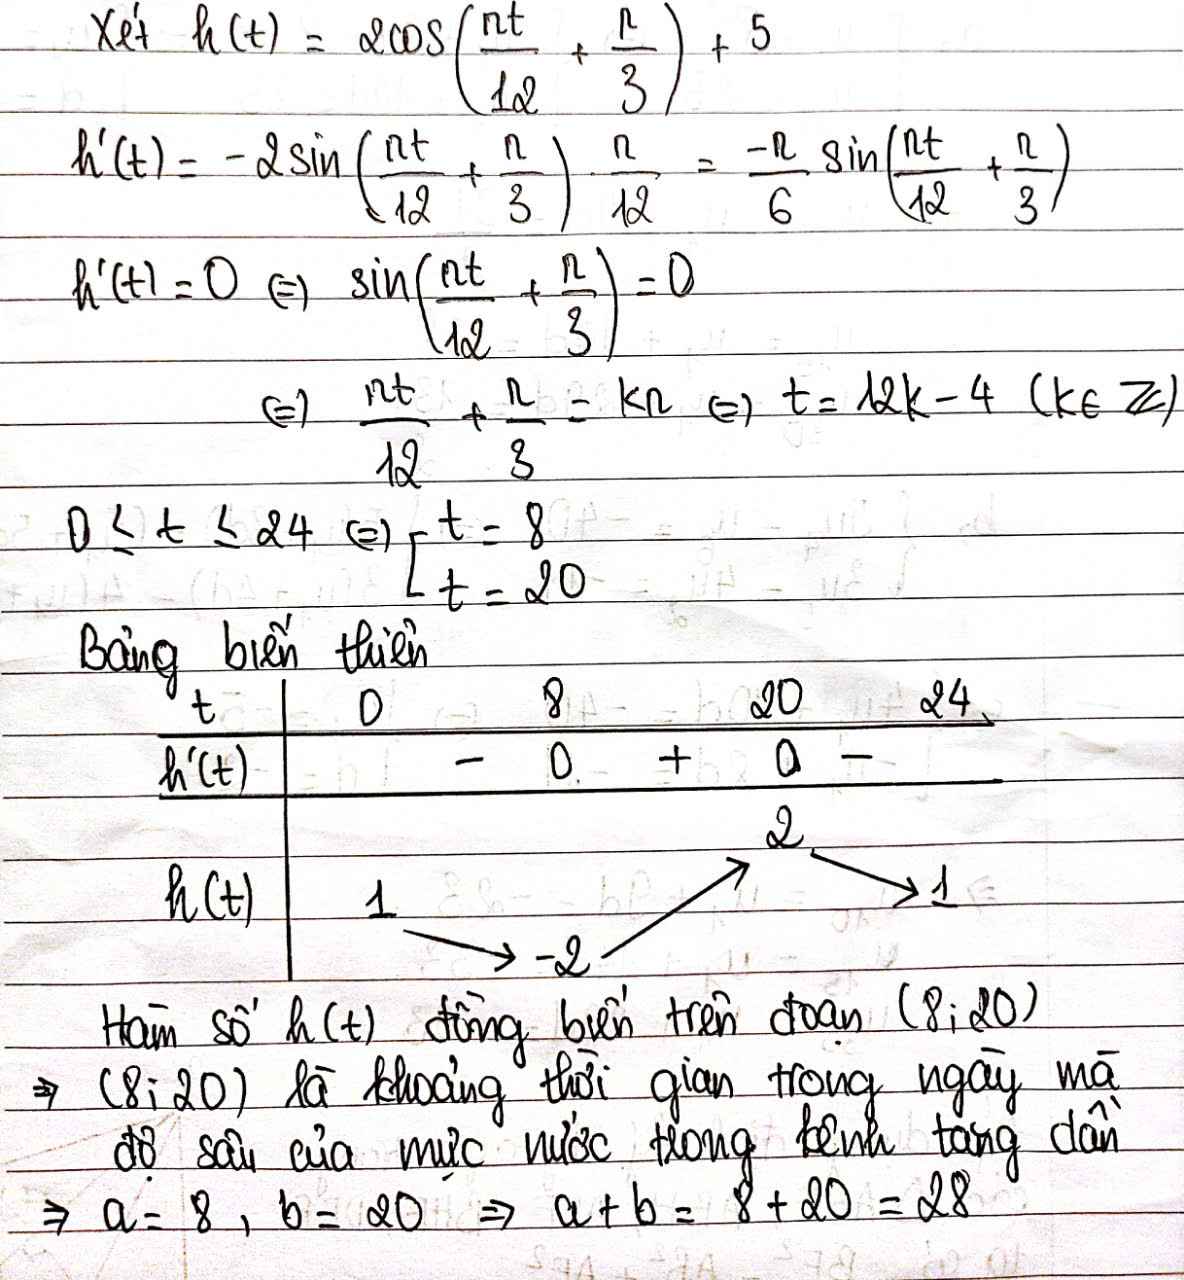 Xét h(t) = 2cos(πt/12 + π/3) + 5
h'(t) = -2sin(πt/12 + π/3) . π/12 = -π/6 sin(πt/12 + π/3)
h'(t) = 0 ⇔ sin(πt/12 + π/3) = 0
⇔ πt/12 + π/3 = kπ ⇔ t = 12k - 4 (k ∈ ℤ)
0 ≤ t ≤ 24 ⇔ [ t = 8
t = 20
Bảng biến thiên
t 0 8 20 24
h'(t) - 0 + 0 -
2
h(t) 1 1
-2
Hàm số h(t) đồng biến trên đoạn (8; 20)
⇒ (8; 20) là khoảng thời gian trong ngày mà
độ sâu của mực nước trong kênh tăng dần
⇒ a = 8, b = 20 ⇒ a + b = 8 + 20 = 28